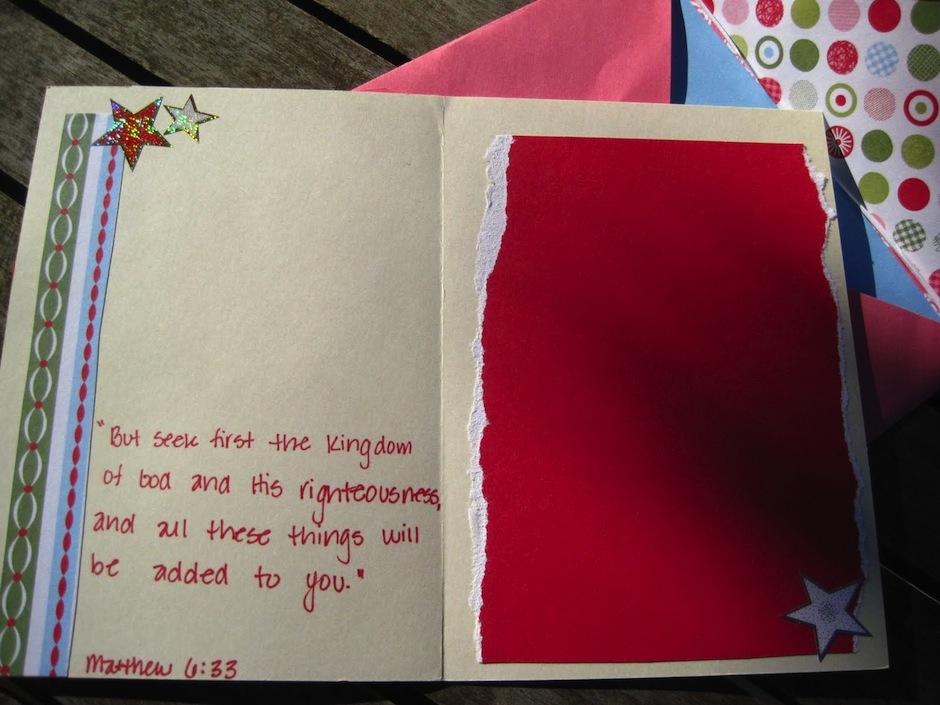 "But seek first the Kingdom
of God and His righteousness,
and all these things will
be added to you."
Matthew 6:33